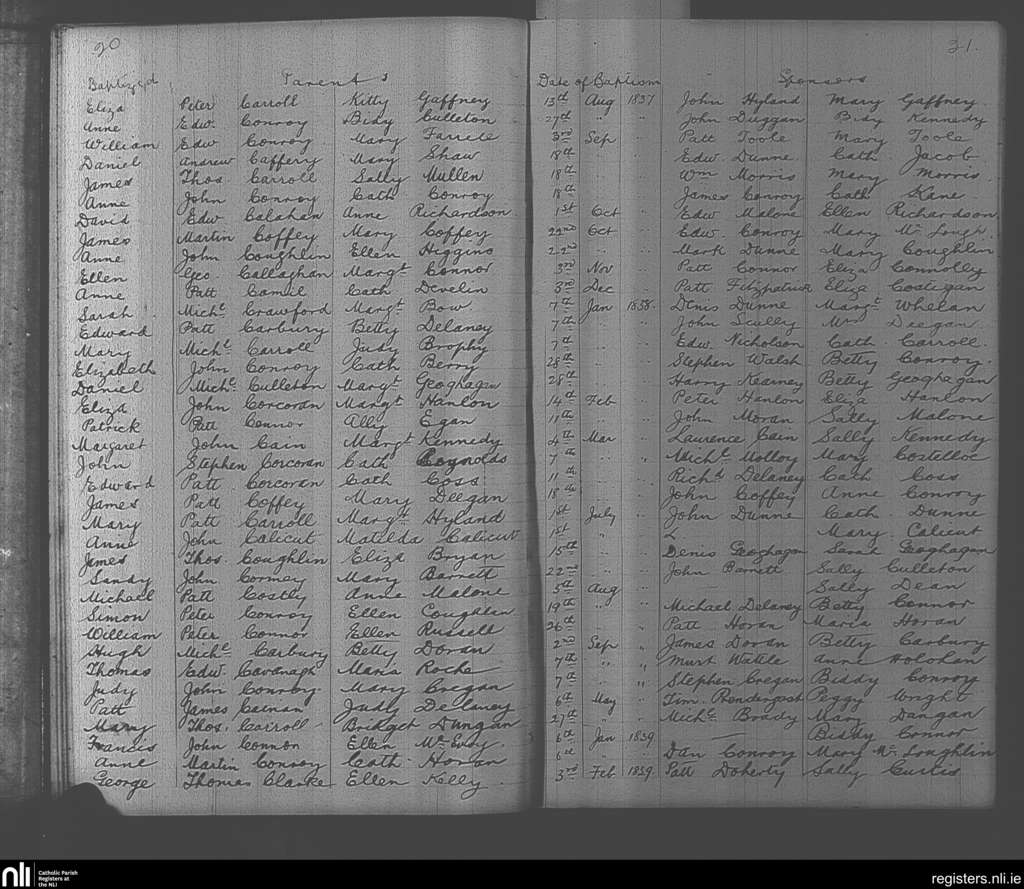 20 21.
Baptized Parents Date of Baptism Sponsors
Eliza Peter Carroll Kitty Gaffney 13th Aug 1837 John Hyland Mary Gaffney
Anne Edw. Conroy Bidy Culleton 27th " " John Duggan Bidy Kennedy
William Edw Conroy Mary Farrell 3rd Sep Patt Toole Mary Toole
Daniel Andrew Cafferry Mary Shaw 18th " " Edw. Dunne Cath Jacob
James Thos. Carroll Sally Mullen 18th " " Wm Morris Mary Morris
Anne John Conroy Cath Conroy 18th " " James Conroy Cath Kane
David Edw Calahan Anne Richardson 1st Oct " Edw Malone Ellen Richardson
James Martin Coffey Mary Coffey 22nd Oct " Edw. Conroy Mary Mc Lough
Anne John Coughlin Ellen Higgins 22nd " " Mark Dunne Mary Coughlin
Ellen Geo. Callaghan Margt Connor 3rd Nov " Patt Connor Eliza Connolly
Anne Patt Comil Cath Develin 3rd Dec " Patt Fitzpatrick Eliza Costigan
Sarah Michl Crawford Margt Bow 7th Jan 1838. Denis Dunne Margt Whelan
Edward Patt Carburry Betty Delaney 7th " " John Scully Mrs Deegan
Mary Michl Carroll Judy Brophy 7th " " Edw. Nicholson Cath Carroll.
Elizabeth John Conroy Cath Berry 28th " " Stephen Walsh Betty Conroy
Daniel Michl Culleton Margt Geoghagan 28th " " Harry Kearney Betty Geoghagan
Eliza John Corcoran Margt Hanlon 14th Feb " Peter Hanlon Eliza Hanlon
Patrick Patt Connor Ally Egan 11th " " John Moran Sally Malone
Margaret John Cain Margt Kennedy 4th Mar " Laurence Cain Sally Kennedy
John Stephen Corcoran Cath Reynolds 7th " " Michl Molloy Mary Costelloe
Edward Patt Corcoran Cath Coss 11th " " Richd Delaney Cath Coss
James Patt Coffey Mary Deegan 18th " " John Coffey Anne Conroy
Mary Patt Carroll Margt Hyland 1st July " John Dunne Cath Dunne
Anne John Calicut Matilda Calicut 1st " " Mary Calicut
James Thos. Coughlin Eliza Bryan 15th " " Denis Geoghagan Sarah Geoghagan
Sandy John Cormey Mary Barrett 22nd " " John Barrett Sally Culleton
Michael Patt Costly Anne Malone 5th Aug " Sally Dean
Simon Peter Conroy Ellen Coughlan 19th " " Michael Delaney Betty Connor
William Peter Connor Ellen Russell 26th " " Patt Horan Maria Horan
Hugh Michl Carbury Betty Doran 2nd Sep " James Doran Betty Carbury
Thomas Edw. Cavanagh Maria Roche 7th " " Murt Wattle Anne Holohan
Judy John Conroy Mary Cregan 7th " " Stephen Cregan Biddy Conroy
Patt James Judy Delaney 6th May " Tim. Pendergast Peggy Wright
Mary Thos. Carroll Bridget Dungan 27th " " Michl Brady Mary Dangan
Francis John Connor Ellen Mc Evoy 6th Jan 1839 — Biddy Connor
Anne Martin Conroy Cath Horan 6th " " Dan Conroy Mary Mc Loughlin
George Thomas Clarke Ellen Kelly 3rd Feb 1839. Patt Doherty Sally Curtis
nli Catholic Parish
Registers at
the NLI
registers.nli.ie